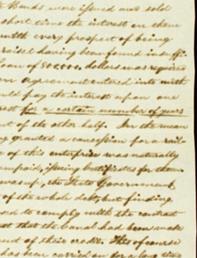 Bonds were issued and sold
short time the interest on them
with every prospect of being
raised having been found in
loan of 500,000 dollars was required
an agreement entered into with
pay the interest upon one
for a certain number of years
of the other half. In the mean
granted a concession for a rail
of this enterprise was naturally
unpaid, issuing certificates for them
the State Government
of the whole debt, but finding
to comply with the contract
that the Canal had been made
out of their credit. This of course
has been carried on for a long time